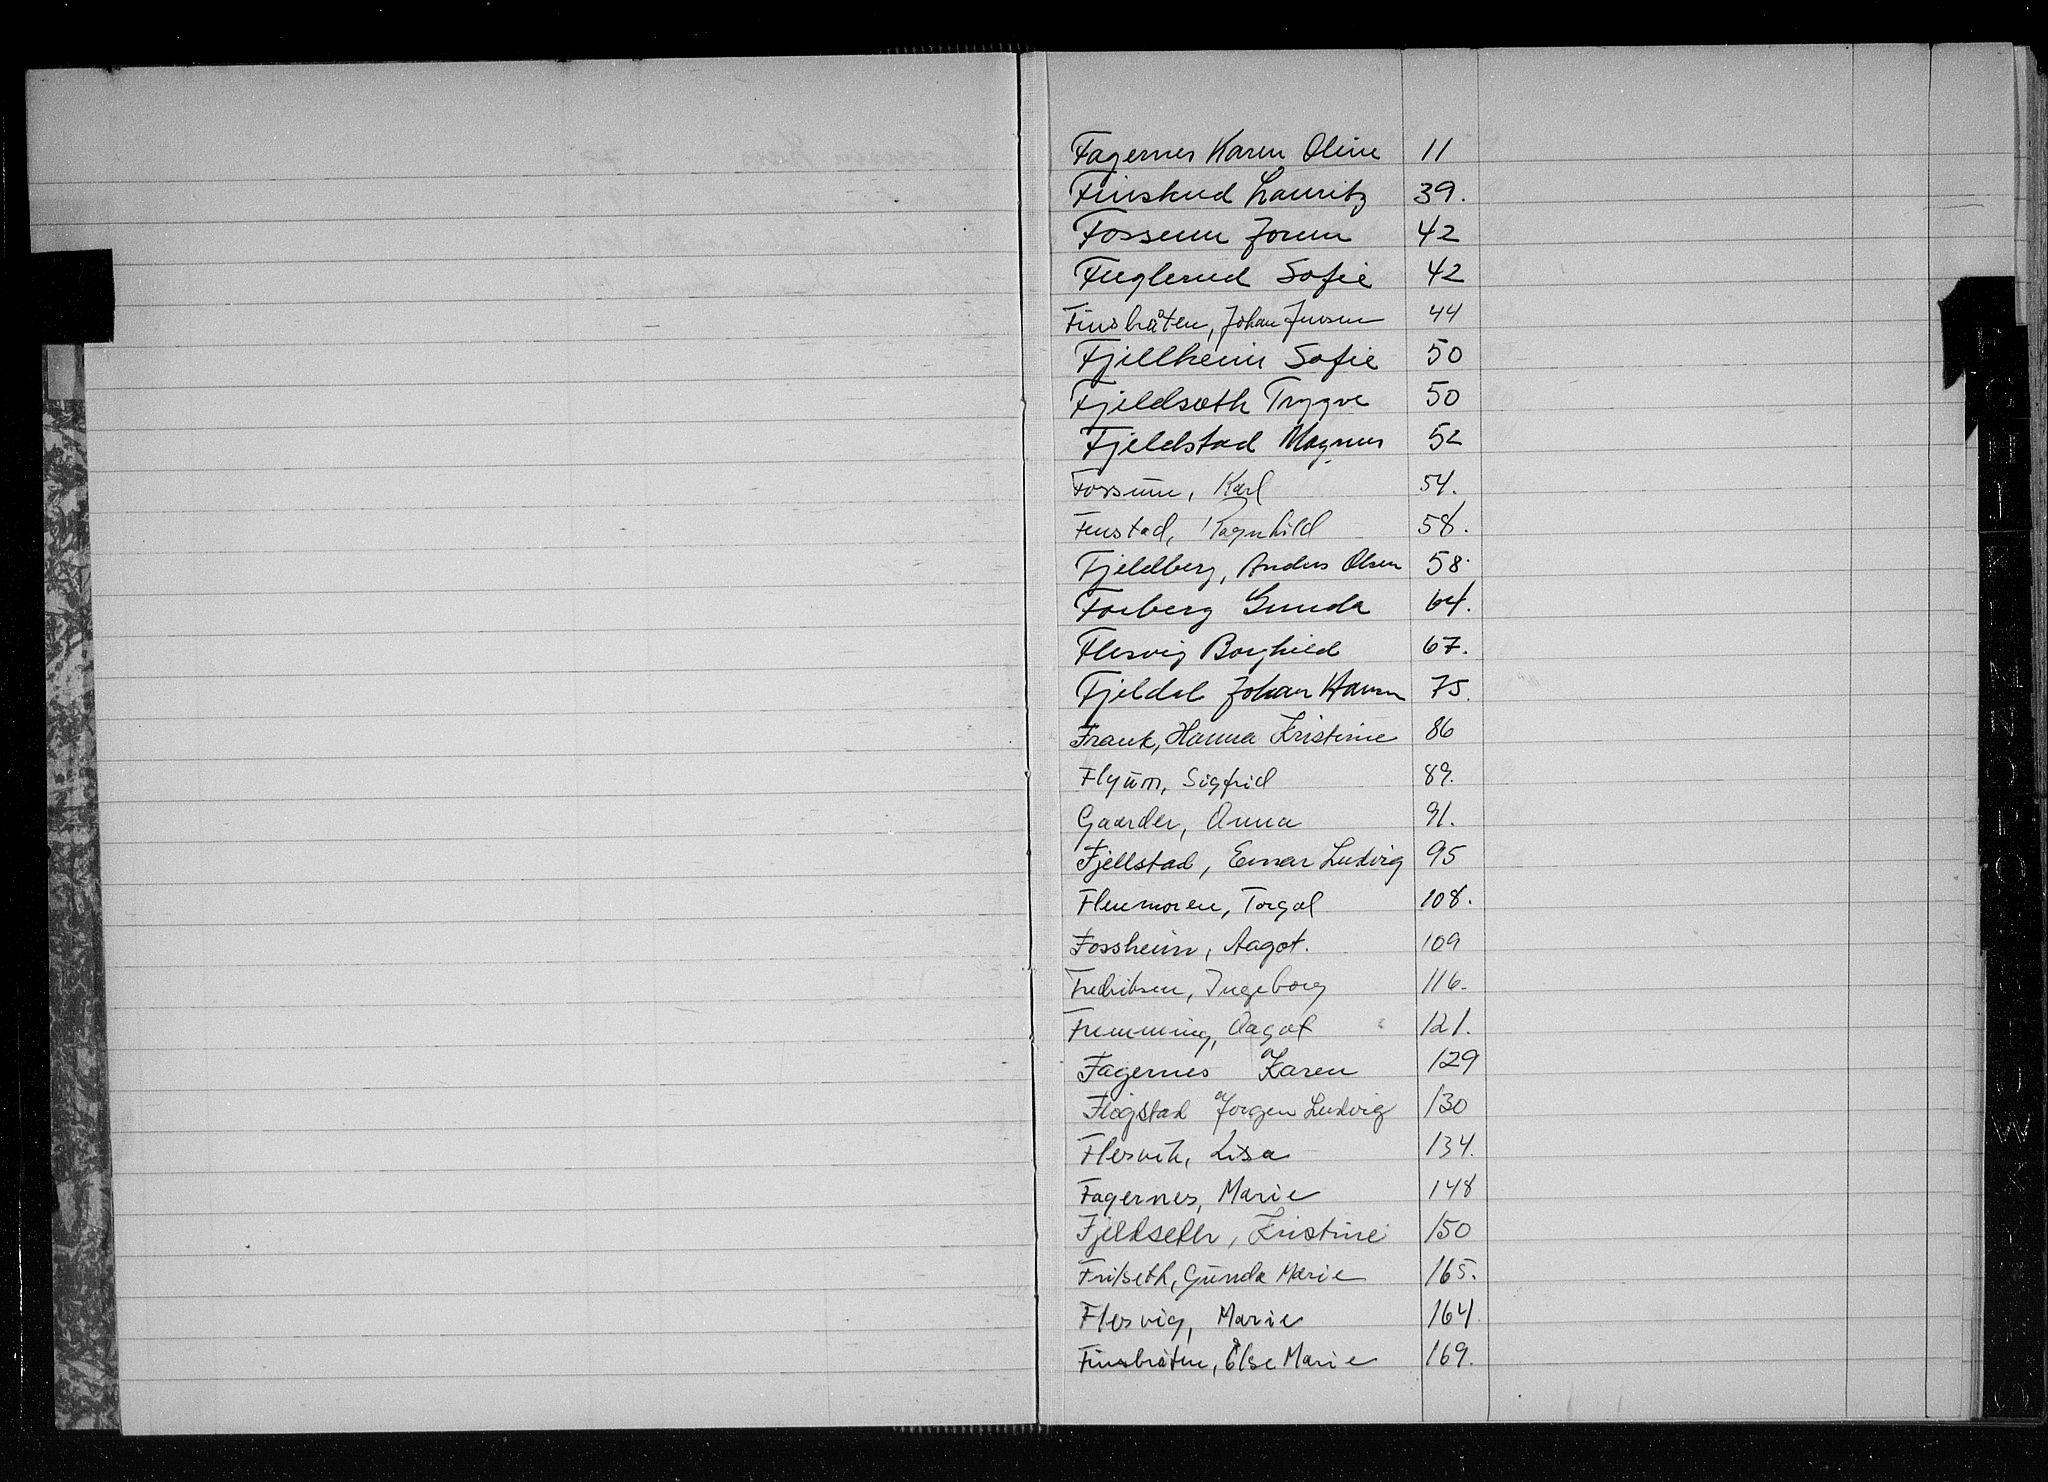 Fagernes Karen Oline 11
Finskud Lauritz 39.
Fossum Jorun 42
Fuglerud Sofie 42
Finsbråten, Johan Jensen 44
Fjillheim Sofie 50
Fjeldsæth Trygve 50
Fjeldstad Magnus 52
Fossum, Karl 54.
Finstad, Ragnhild 58.
Fjeldberg, Anders Olsen 58.
Forberg Gunda 64.
Flesvig Borghild 67.
Fjeldal Johan Hansen 75.
Frank, Hanna Kristine 86
Flyum, Sigfrid 89.
Gaarder, Anna 91.
Fjellstad, Einar Ludvig 95
Flenmoren, Torgal 108.
Fossheim, Aagot. 109
Fredriksen, Ingeborg 116.
Fremming, Aagot 121.
Fagernes Karen 129
Flogstad Jørgen Ludvig 130
Flesvik, Lisa 134.
Fagernes, Marie 148
Fjeldseth, Kristine 150
Gunda Marie 165.
Flesvig, Marie 164
Finsbråten, Else Marie 169.